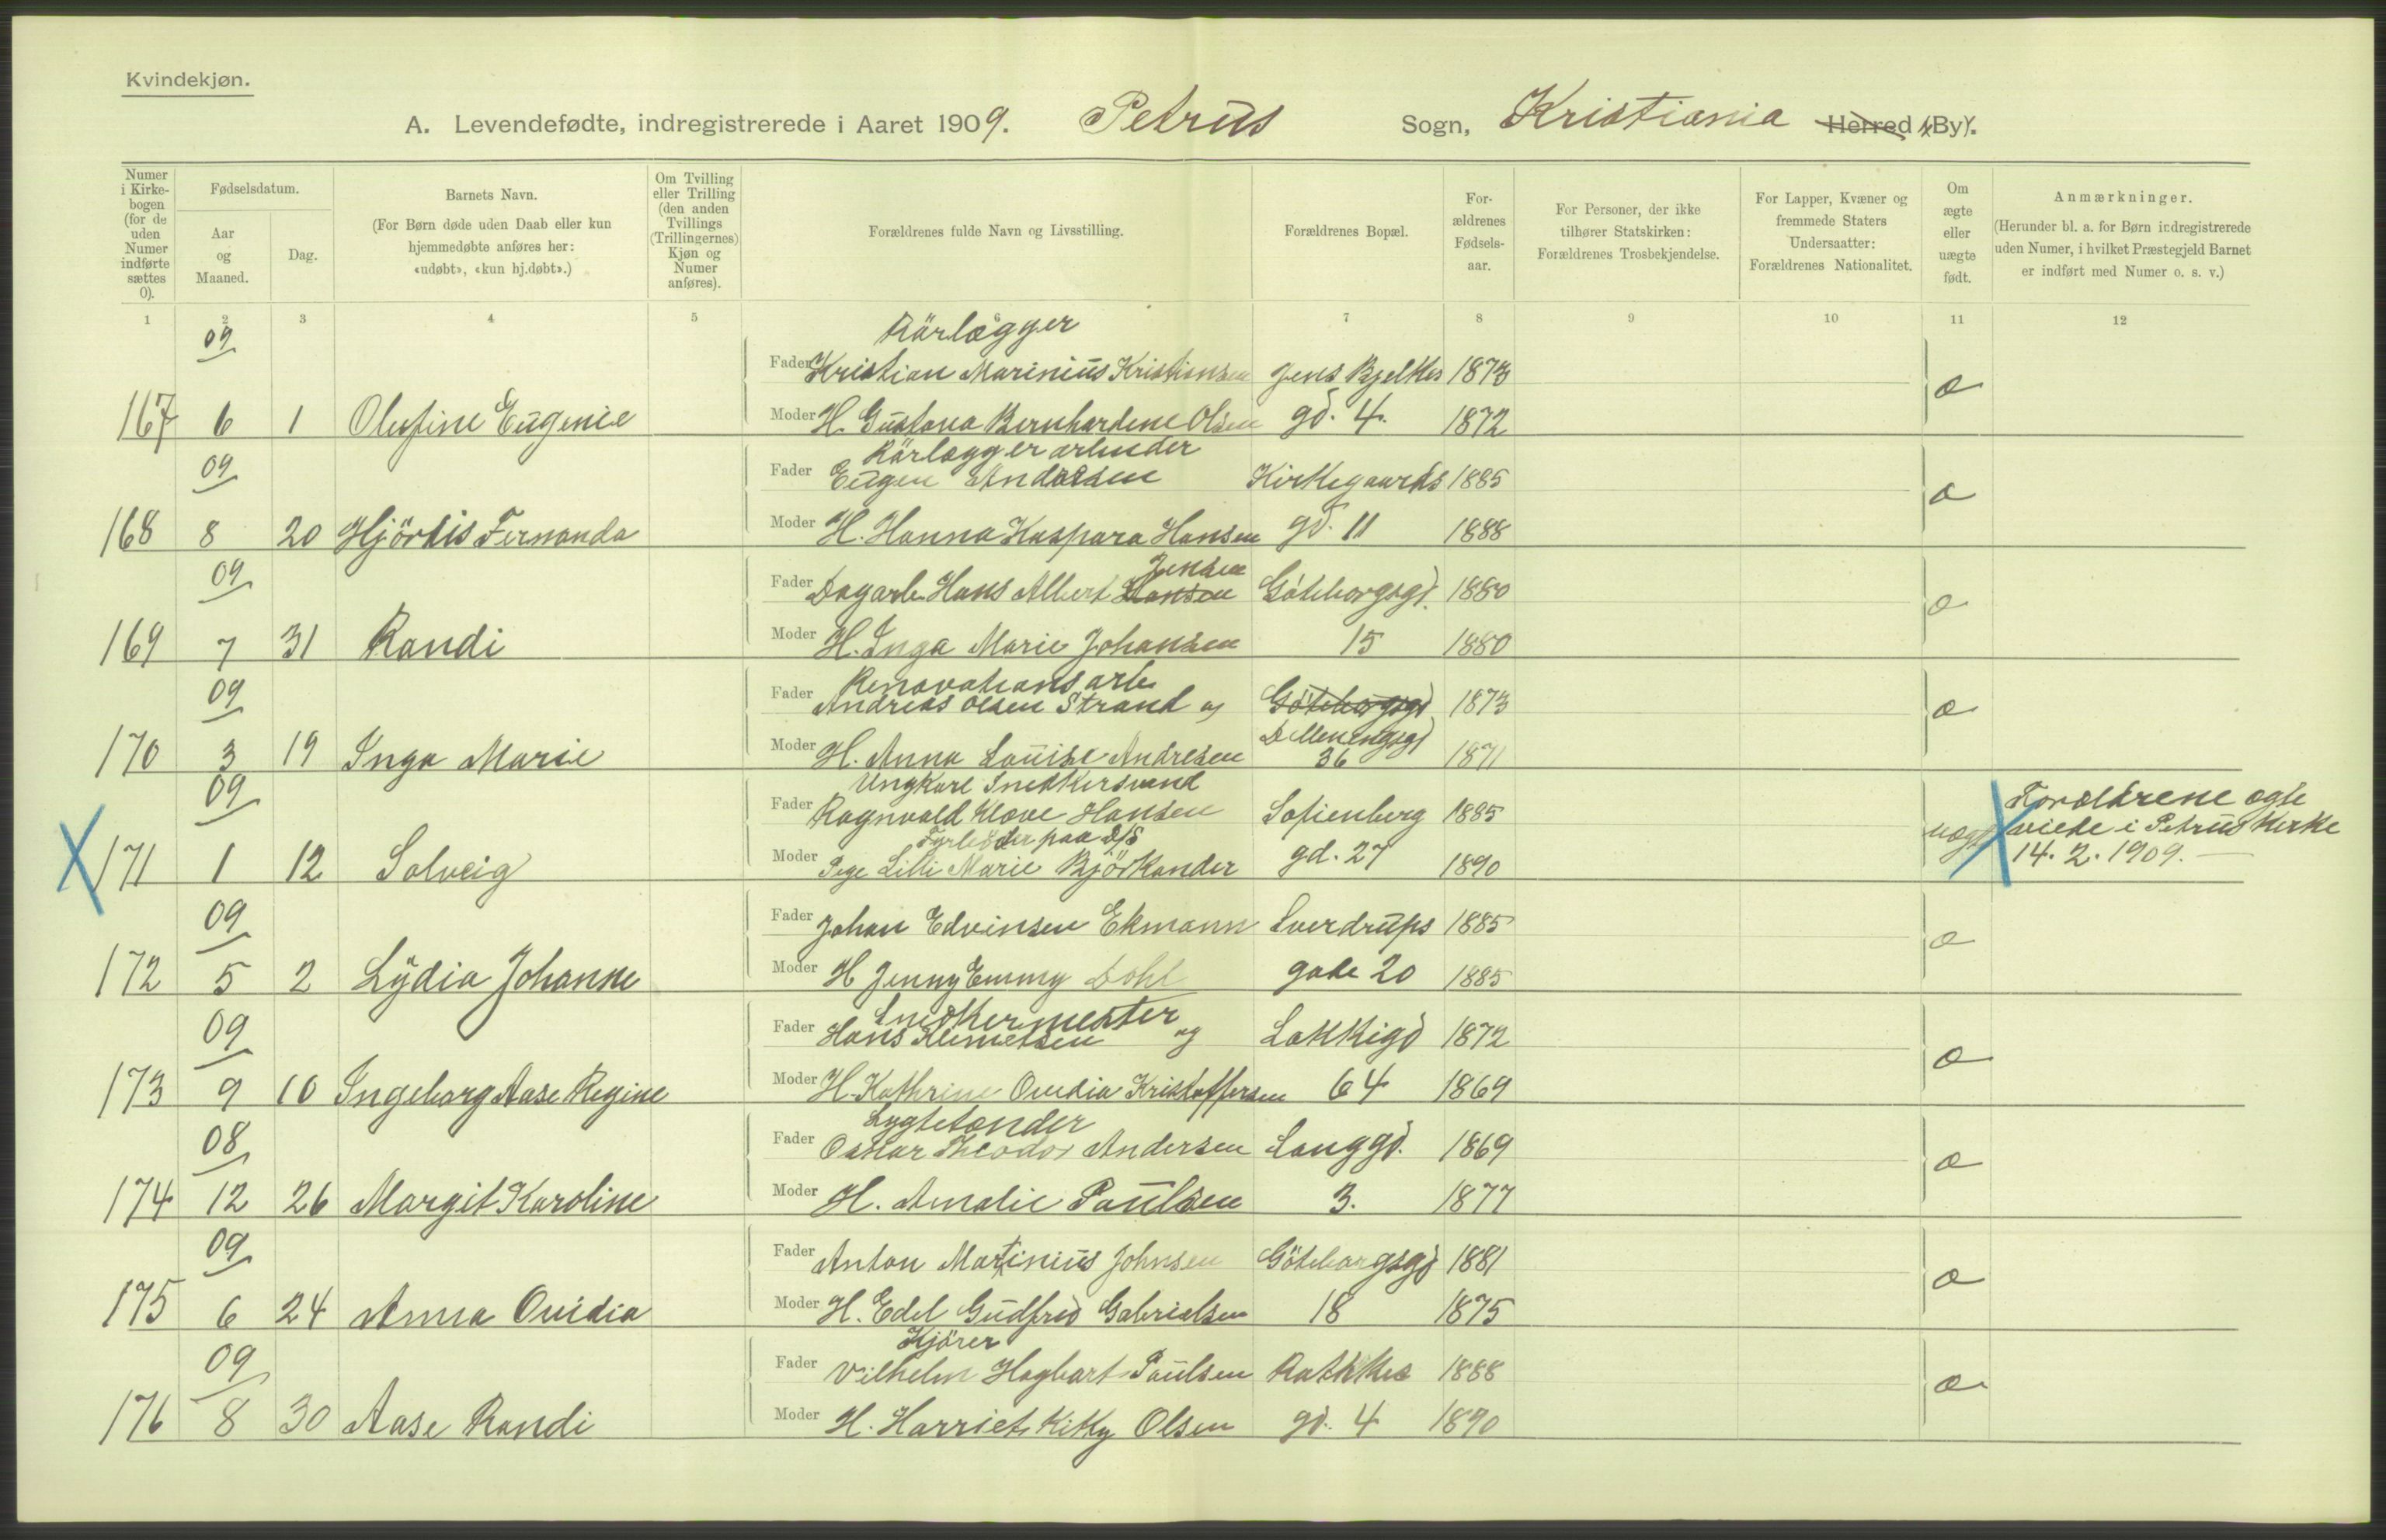 Kvindekjøn.
A. Levendefødte, indregistrerede i Aaret 1909. Petrus Sogn, Kristiania Herred (By).
Numer i Kirkebogen (for de uden Numer indførte sættes 0).
Fødselsdatum.
Aar og Maaned.
Dag.
Barnets Navn.
(For Børn døde uden Daab eller kun hjemmedøbte anføres her: «udøbt», «kun hj.døbt».)
Om Tvilling eller Trilling (den anden Tvillings (Trillingernes) Kjøn og Numer anføres).
Forældrenes fulde Navn og Livsstilling.
Forældrenes Bopæl.
Forældrenes Fødselsaar.
For Personer, der ikke tilhører Statskirken: Forældrenes Trosbekjendelse.
For Lapper, Kvæner og fremmede Staters Undersaatter: Forældrenes Nationalitet.
Om ægte eller uægte født.
Anmærkninger.
(Herunder bl. a. for Børn indregistrerede uden Numer, i hvilket Præstegjeld Barnet er indført med Numer o. s. v.)
1 2 3 4 5 6 7 8 9 10 11 12
09 Rörlægger
Fader Kristian Marinius Kristiansen Jens Bjelkes 1873 æ
167 6 1 Olufine Eugenie Moder H. Gustava Bernhardene Olsen gd. 4. 1872
09 Rörlæggerarbeider
Fader Eugen Andresen Kirkegaards 1885 æ
168 8 20 Hjördis Fernanda Moder H. Hanna Kaspara Hansen gd. 11 1888
09 Jensen
Fader Dagarb. Hans Albert Hansen Göteborgsgd. 1880 æ
169 7 31 Randi Moder H. Inga Marie Johansen 15 1880
09 Renovationsarb.
Fader Andreas Olsen Strand og Göteborgsgd 1873 æ
170 3 19 Inga Marie Moder H. Anna Louise Andresen Dælenenggd 36 1871
09 Ungkarl Snedkersvend
Fader Ragnvald Klove Hansen Sofienberg 1885
Fyrböder paa D/S
171 1 12 Solveig Moder Pige Lilli Marie Björkander gd. 27 1890 uægte
Forældrene ægte
viede i Petrus Kirke
14. 2. 1909.
09 Fader Johan Edvinsen Ekmann Sverdrups 1885 æ
172 5 2 Lydia Johanne Moder H Jenny Emmy Dohl gade 20 1885
09 Snedkermester
Fader Hans Klemetsen og Lakkigd 1872 æ
173 9 10 Ingeborg Aase Regine Moder H. Kathrine Ovidia Kristoffersen 64 1869
08 Lygtetænder
Fader Oskar Theodor Andersen Langgd. 1869 æ
174 12 26 Margit Karoline Moder H. Amalie Paulsen 3. 1877
09 Fader Anton Martinius Johnsen Göteborgsgd 1881 æ
175 6 24 Anna Ovidia Moder H. Edel Gudfrid Gabrielsen 18 1875
09 Kjörer
Fader Vilhelm Hagbart Paulsen Rathkes 1888 æ
176 8 30 Aase Randi Moder H. Harriet Kitty Olsen gd. 4 1890